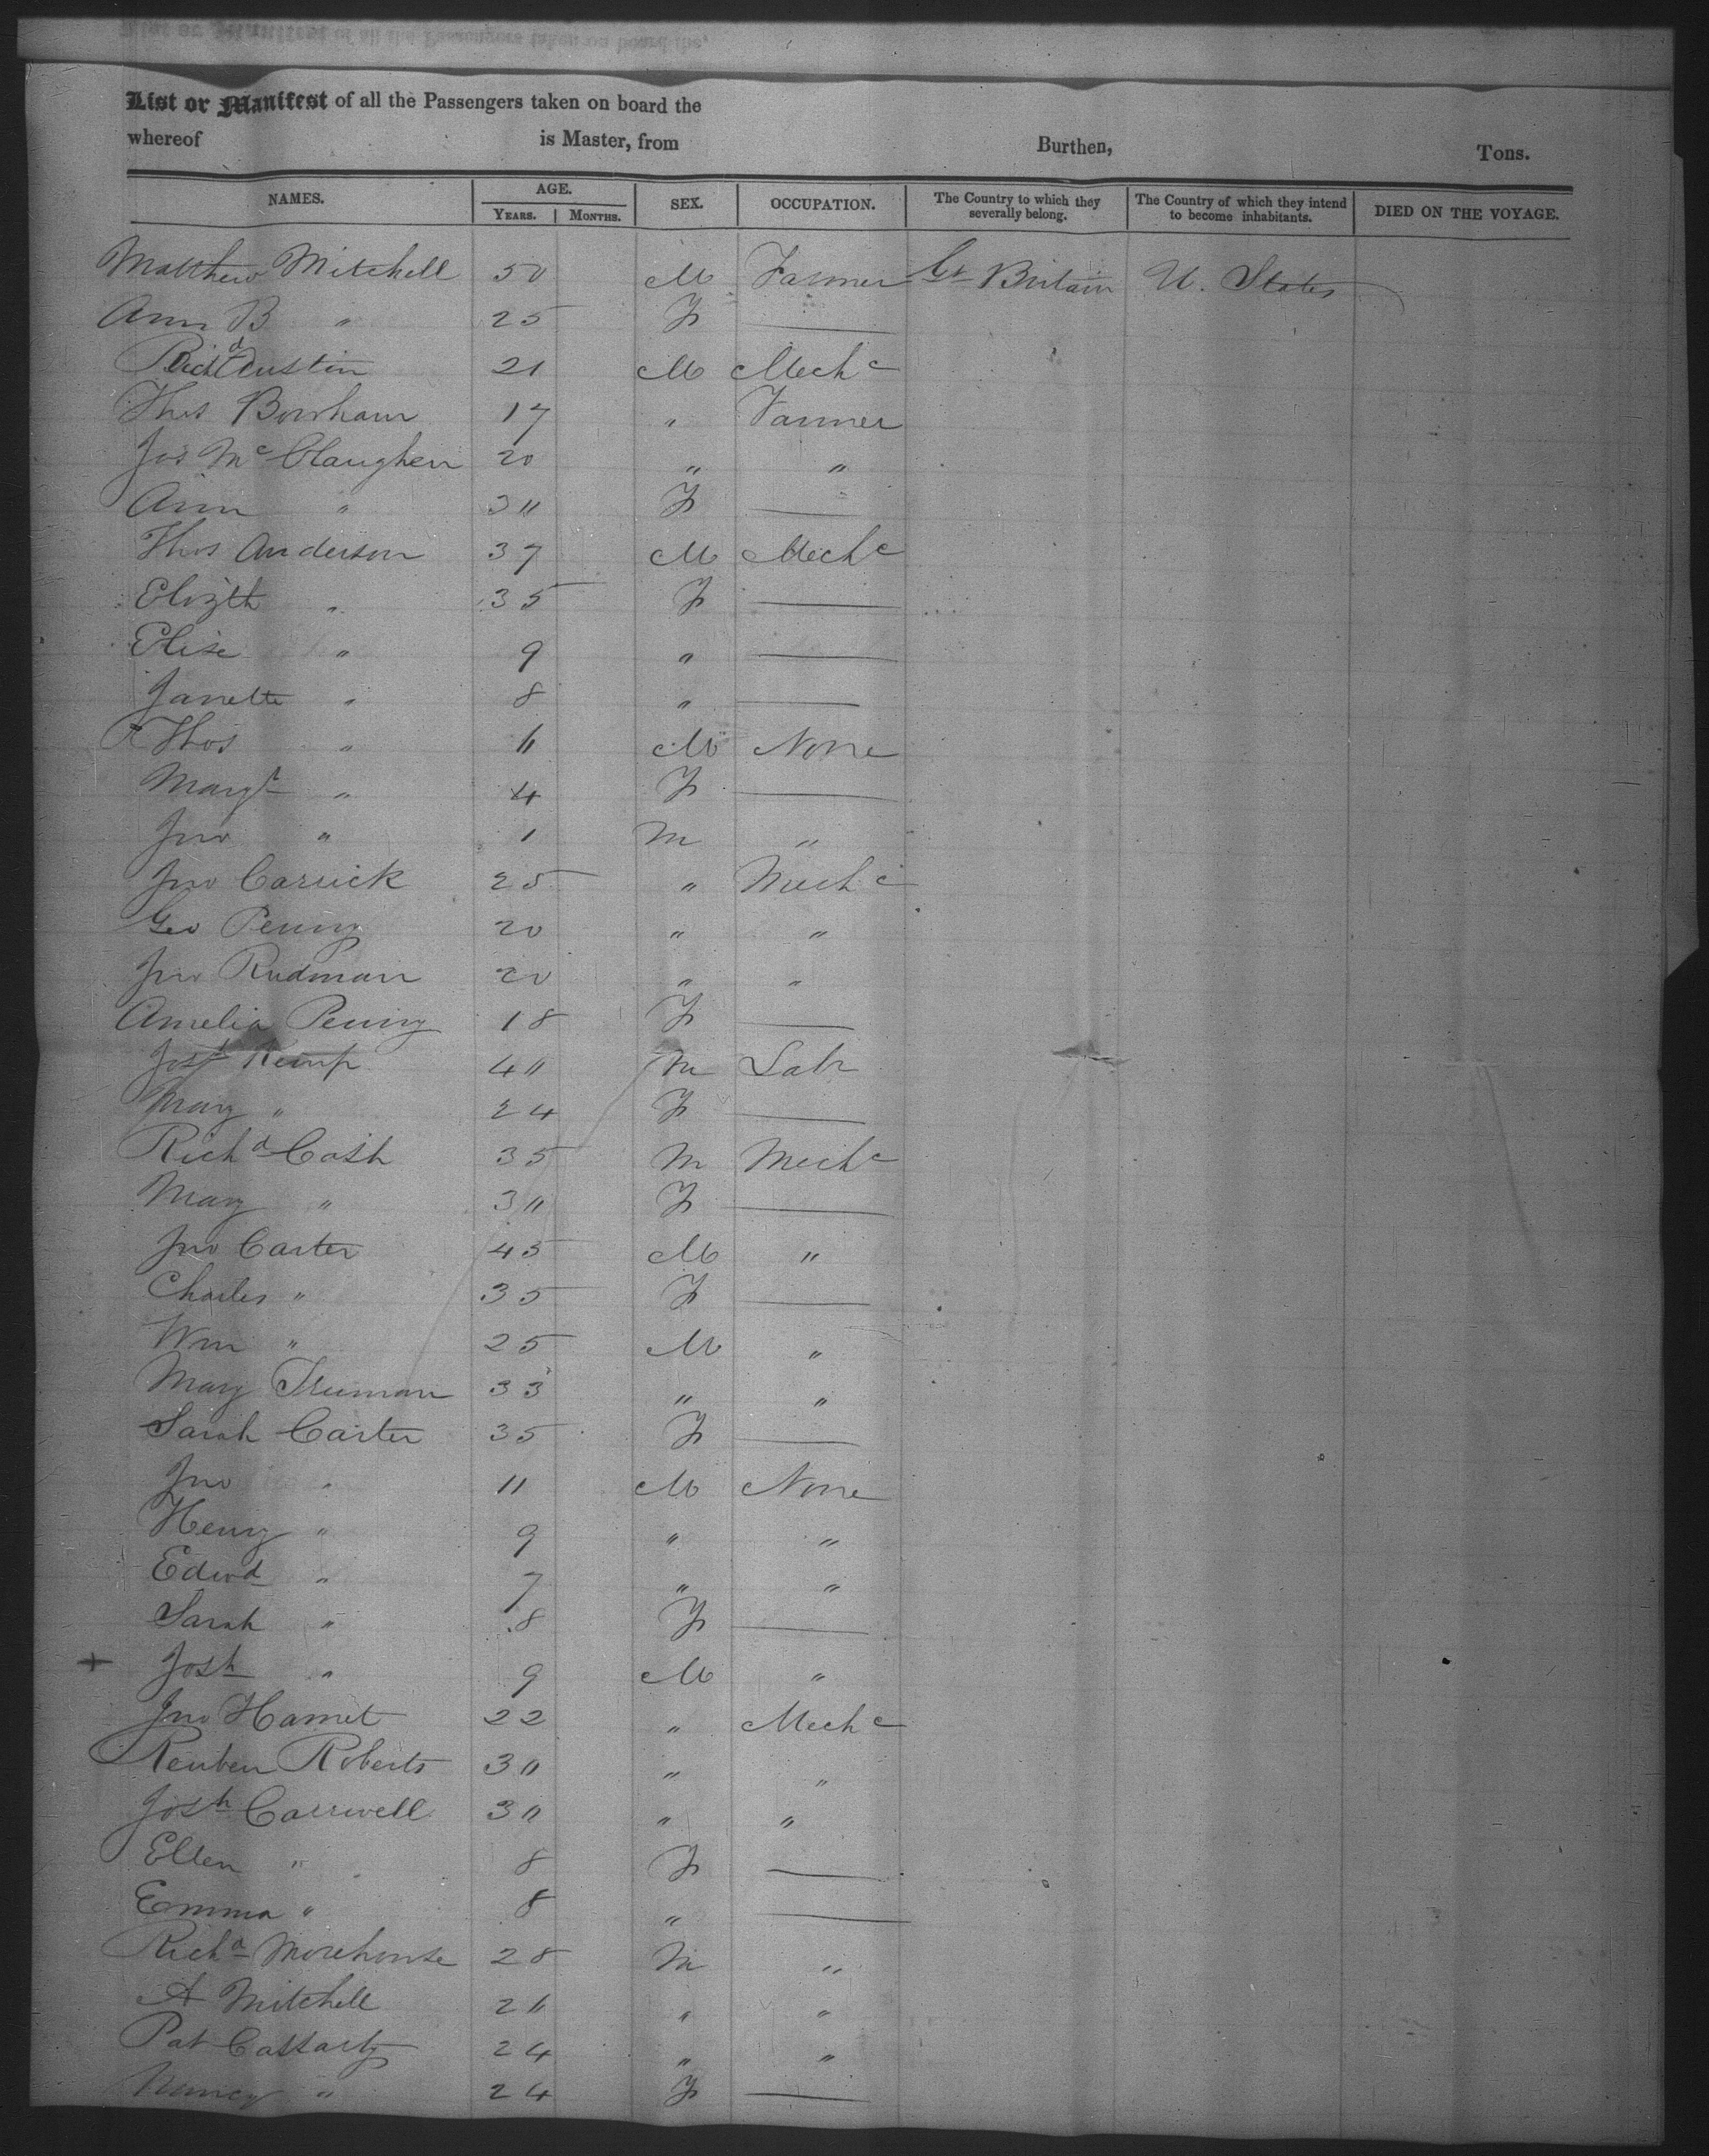 List or Manifest of all the Passengers taken on board the
whereof is Master, from Burthen, Tons.
NAMES. AGE. YEARS. MONTHS. SEX. OCCUPATION. The Country to which they severally belong. The Country of which they intend to become inhabitants. DIED ON THE VOYAGE.
Matthew Mitchell 50 M Farmer Gt Britain U. States
Ann B " 25 F
Richd Austin 21 M Mechc
Thos Bonham 17 " Farmer
Jos McClaughen 20 " "
Ann " 30 F
Thos Anderson 37 M Mechc
Elizth " 35 F
Elise " 9 "
Janette " 8 "
Thos " 6 M None
Margt " 4 F
Jno " 1 M "
Jno Carrick 25 " Mechc
Geo Penny 20 " "
Jno Rudman 20 " "
Amelia Penny 18 F
Josh Kemp 40 M Labr
Mary " 24 F
Richd Cash 35 M Mechc
Mary " 30 F
Jno Carter 45 M "
Charles " 35 F
Wm " 25 M "
Mary Truman 33 " "
Sarah Carter 35 F
Jno " 11 M None
Henry " 9 " "
Edwd " 7 " "
Sarah " 8 F
+ Josh " 9 M "
Jno Hamet 22 " Mechc
Reuben Roberts 30 " "
Josh Carrwell 30 " "
Ellen " 8 F
Emma " 8 "
Richd Morehouse 28 M "
A Mitchell 26 " "
Pat Cassarty 24 " "
Nancy " 24 F